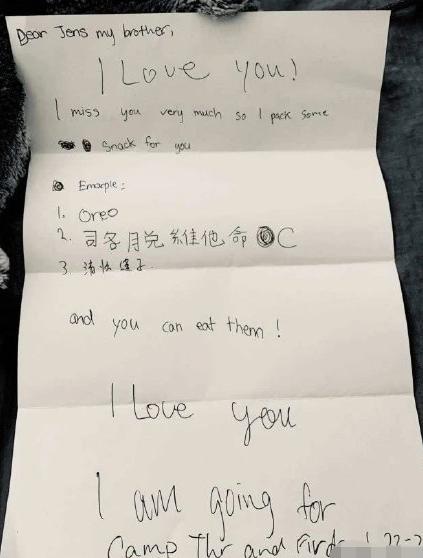 Dear Jens my brother,
I Love you!
I miss you very much so I pack some
Snack for you
Emaxple:
1. Oreo
2. 司各月兑維他命 C
3. 清
and you can eat them!
I Love you
I am going for
Camp Thr and